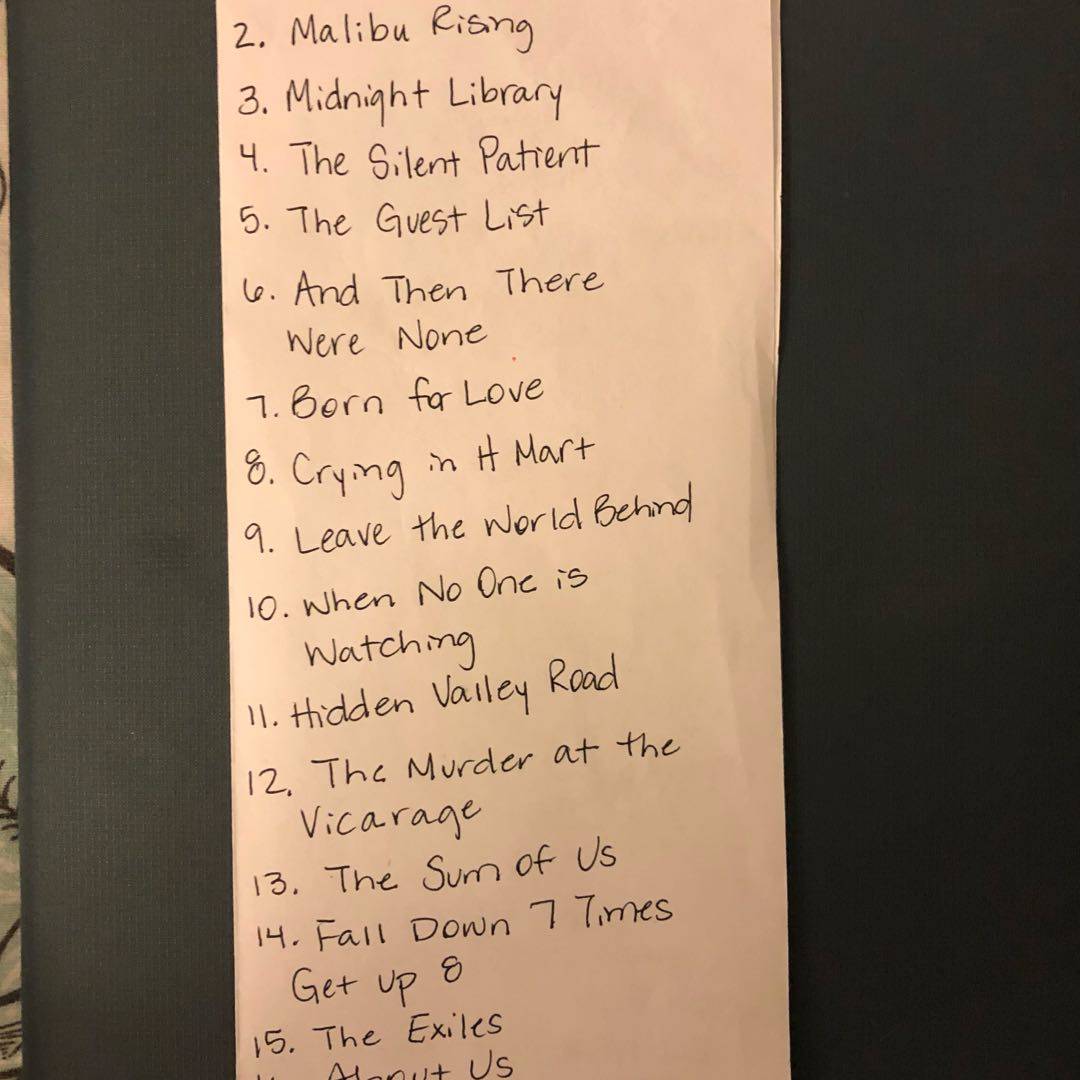 2. Malibu Rising
3. Midnight Library
4. The Silent Patient
5. The Guest List
6. And Then There
Were None
7. Born for Love
8. Crying in H Mart
9. Leave the World Behind
10. When No One is
Watching
11. Hidden Valley Road
12. The Murder at the
Vicarage
13. The Sum of Us
14. Fall Down 7 Times
Get up 8
15. The Exiles
About Us